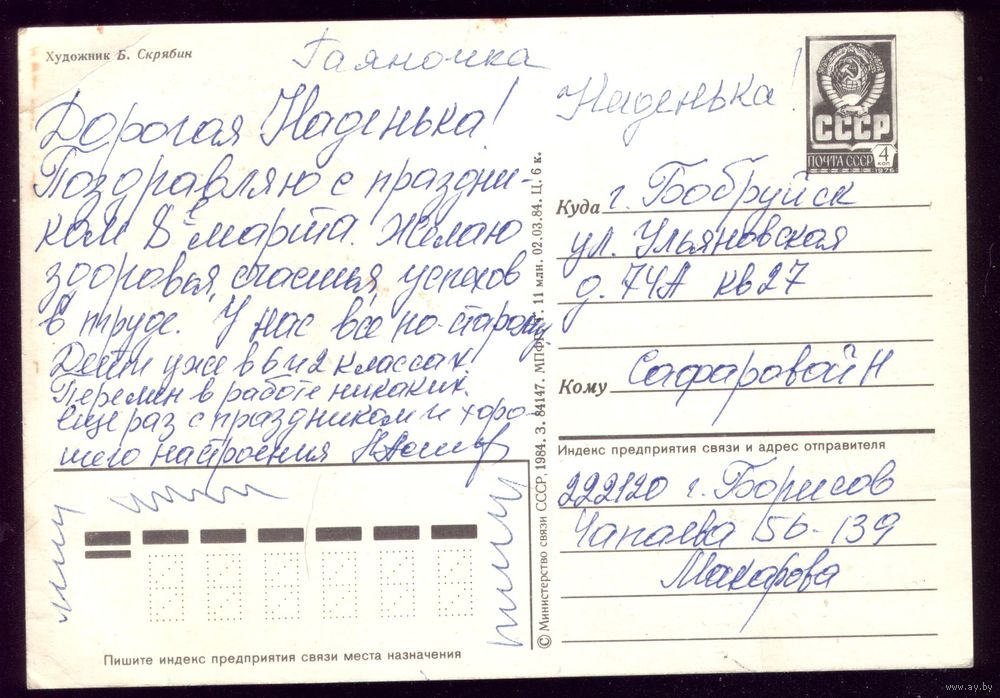 Художник Б. Скрябин
Гаяночка
Дорогая Наденька!
Поздравляю с праздни-
ком 8 е марта. Желаю
здоровья, счастья, успехов
в труде. У нас все по-старому
Дети уже в 6 и 2 классах.
Перемен в работе никаких.
Еще раз с праздником и хоро-
шего настроения
Пишите индекс предприятия связи места назначения
© Министерство связи СССР, 1984. З. 84147. МПФГ. Т. 11 млн. 02.03.84. Ц. 6 к.
Наденька!
СССР
ПОЧТА СССР 4 коп
1976
Куда г. Бобруйск
ул. Ульяновская
д. 74А кв 27
Кому Сафаровой Н
Индекс предприятия связи и адрес отправителя
222120 г. Борисов
Чапаева 15б-139
Макарова
www.ay.by